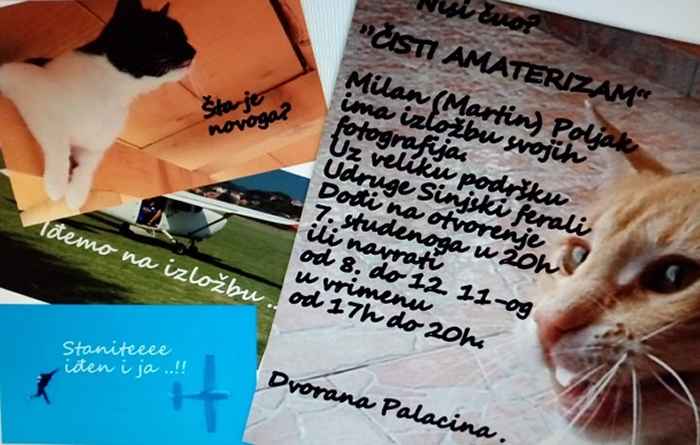 Šta je
novoga?
Iđemo na izložbu ..
Staniteeee
iđen i ja ..!!
Nisi čuo?
"ČISTI AMATERIZAM"
Milan (Martin) Poljak
ima izložbu svojih
fotografija.
Uz veliku podršku
Udruge Sinjski ferali
Dođi na otvorenje
7. studenoga u 20h
ili navrati
od 8. do 12. 11-og
u vrimenu
od 17h do 20h.
Dvorana Palacina .